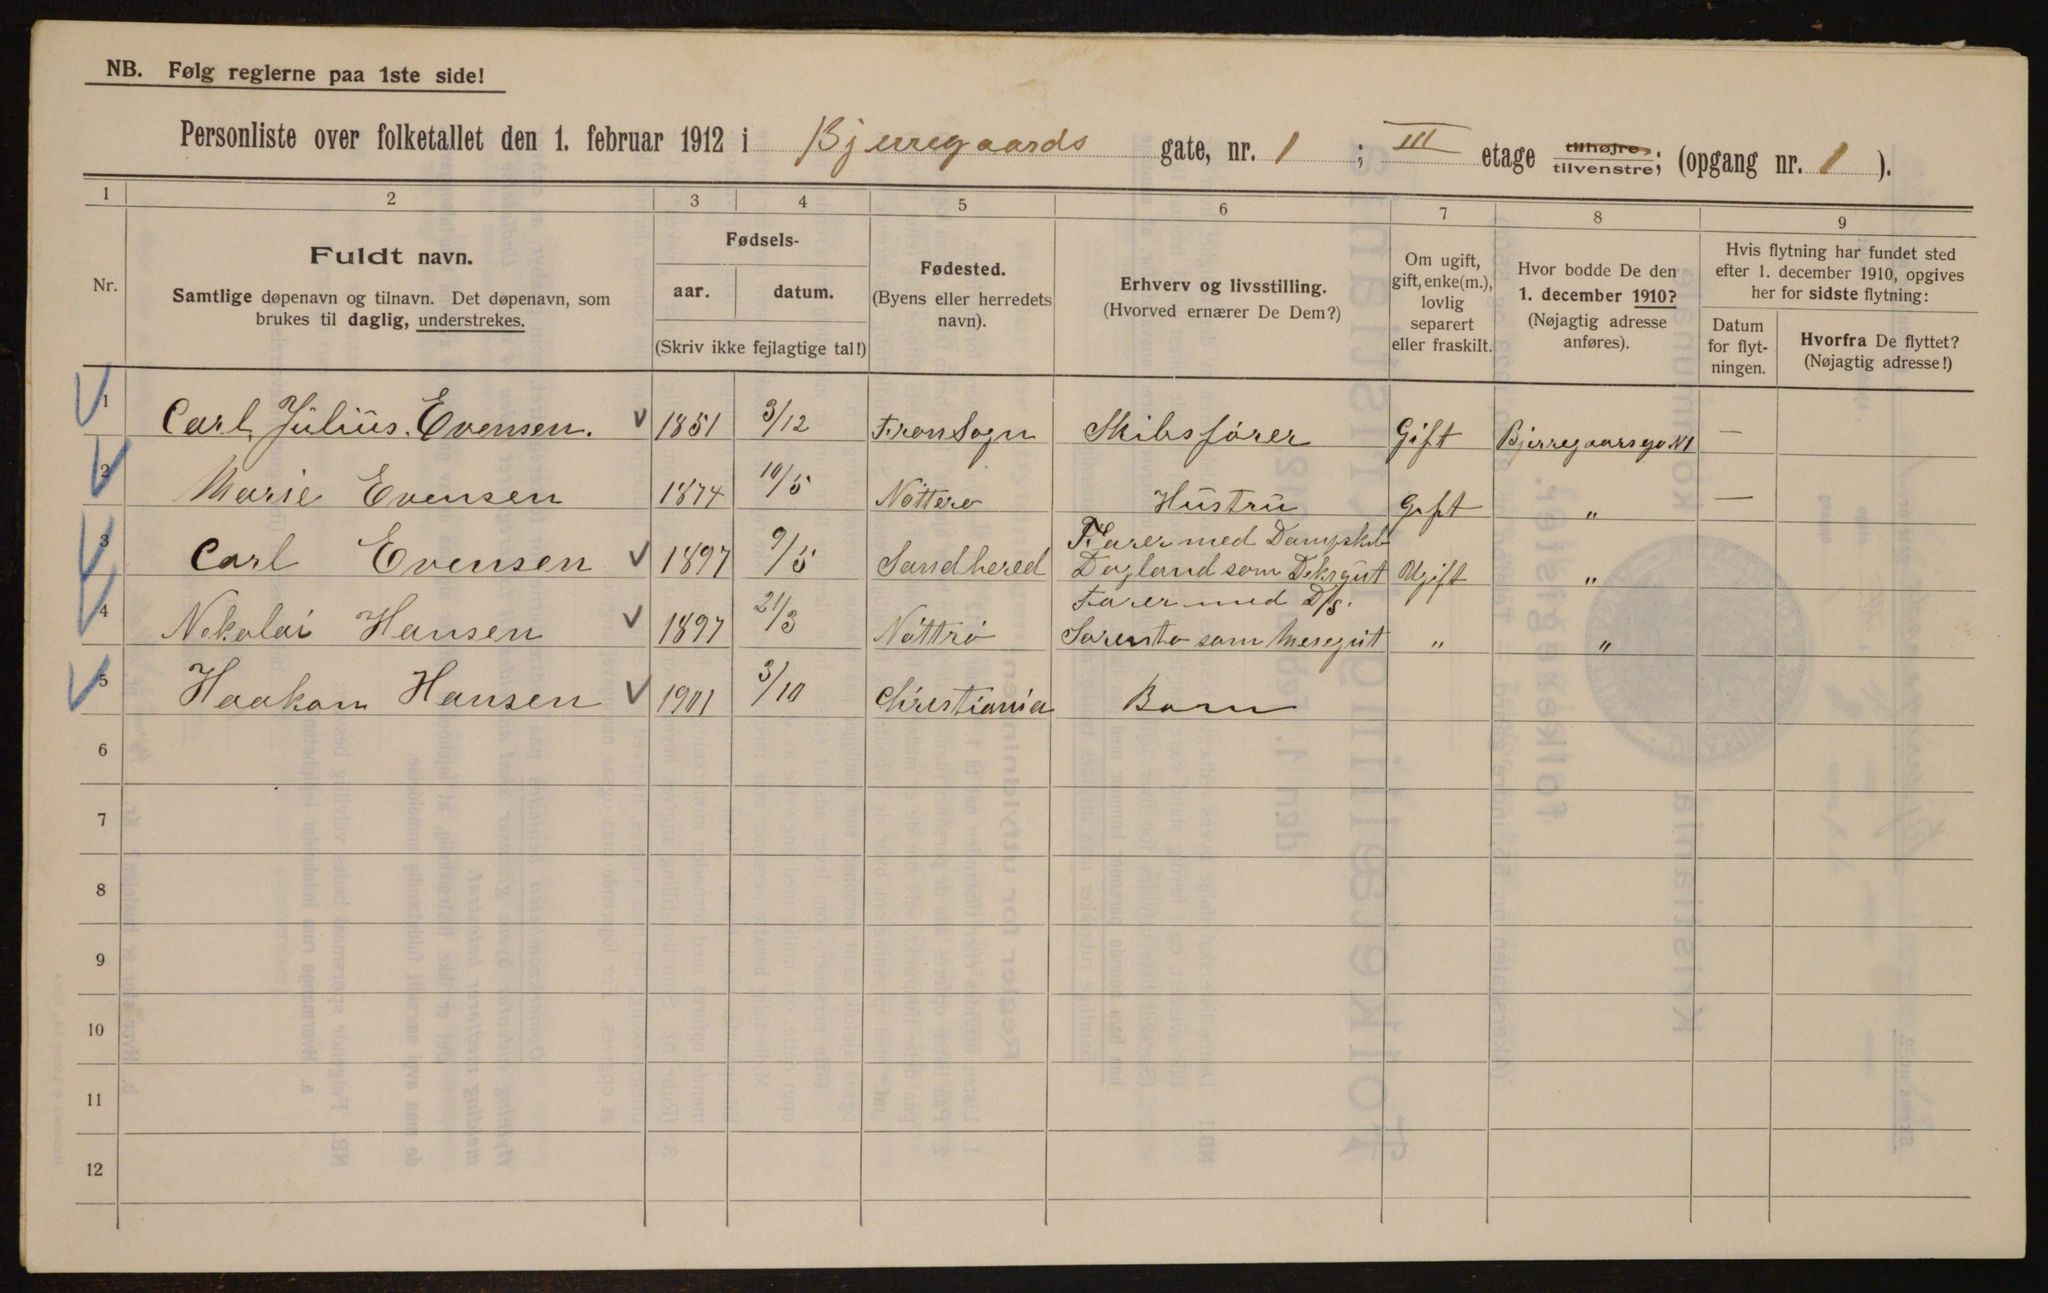 NB. Følg reglerne paa 1ste side!
Personliste over folketallet den 1. februar 1912 i Bjerregaards gate, nr. 1 ; III etage tilhøjre tilvenstre; (opgang nr. 1 ).
1 2 3 4 5 6 7 8 9
Nr.
Fuldt navn.
Samtlige døpenavn og tilnavn. Det døpenavn, som
brukes til daglig, understrekes.
Fødsels-
aar. datum.
(Skriv ikke fejlagtige tal!)
Fødested.
(Byens eller herredets
navn).
Erhverv og livsstilling.
(Hvorved ernærer De Dem?)
Om ugift,
gift, enke(m.),
lovlig
separert
eller fraskilt.
Hvor bodde De den
1. december 1910?
(Nøjagtig adresse
anføres).
Hvis flytning har fundet sted
efter 1. december 1910, opgives
her for sidste flytning:
Datum
for flyt-
ningen.
Hvorfra De flyttet?
(Nøjagtig adresse!)
1 Carl Julius Evensen. 1851 3/12 Fron Sogn Skibsfører Gift Bjerregaarsga N1 —
2 Marie Evensen 1874 10/5 Nøttero Hustru Gift " —
3 Carl Evensen 1897 9/5 Sandhered Farer med Dampskb
Dagland som Deksgut Ugift "
4 Nekolai Hansen 1897 21/3 Nøttrø Farer med D/S.
Sorento som Mesegut " "
5 Haakon Hansen 1901 3/10 Christiania Barn
6
7
8
9
10
11
12